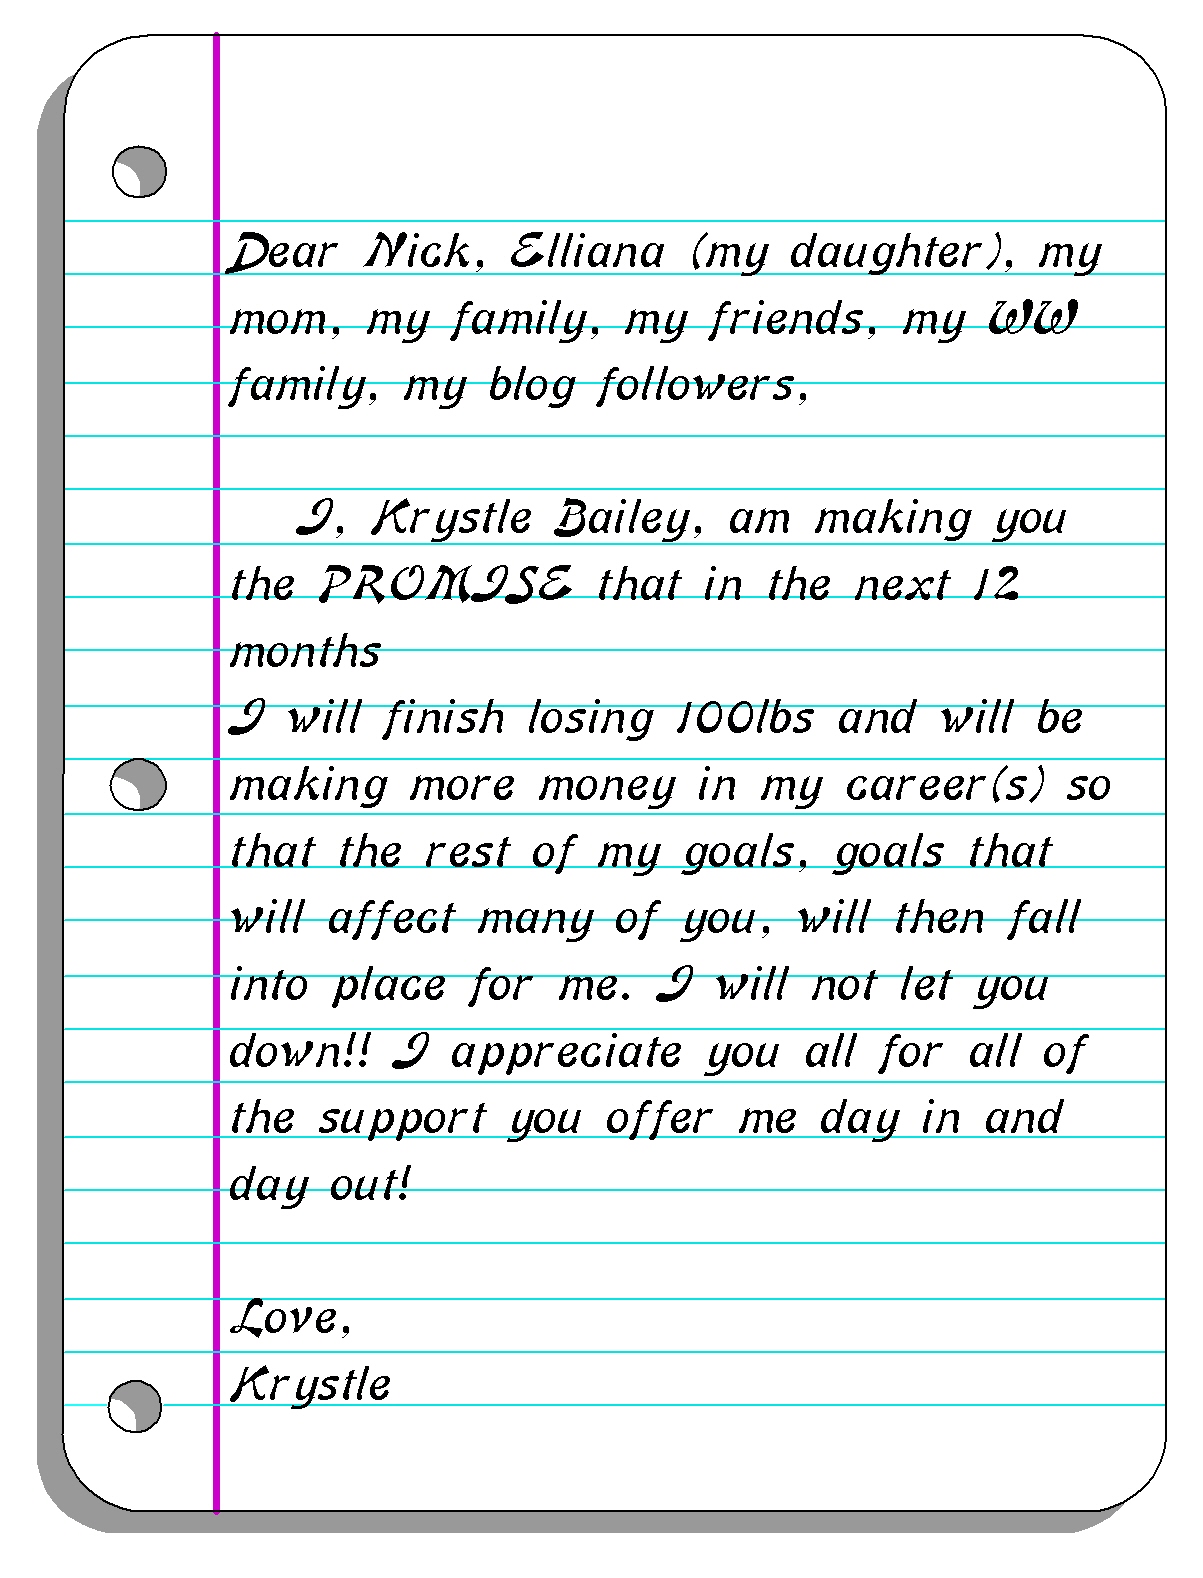 Dear Nick, Elliana (my daughter), my
mom, my family, my friends, my WW
family, my blog followers,
I, Krystle Bailey, am making you
the PROMISE that in the next 12
months
I will finish losing 100lbs and will be
making more money in my career(s) so
that the rest of my goals, goals that
will affect many of you, will then fall
into place for me. I will not let you
down!! I appreciate you all for all of
the support you offer me day in and
day out!
Love,
Krystle